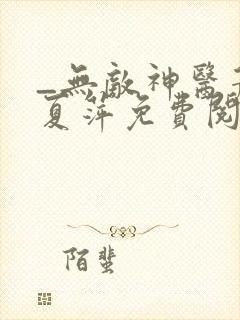 _無敵神醫
夏萍免費閱
陌蜚